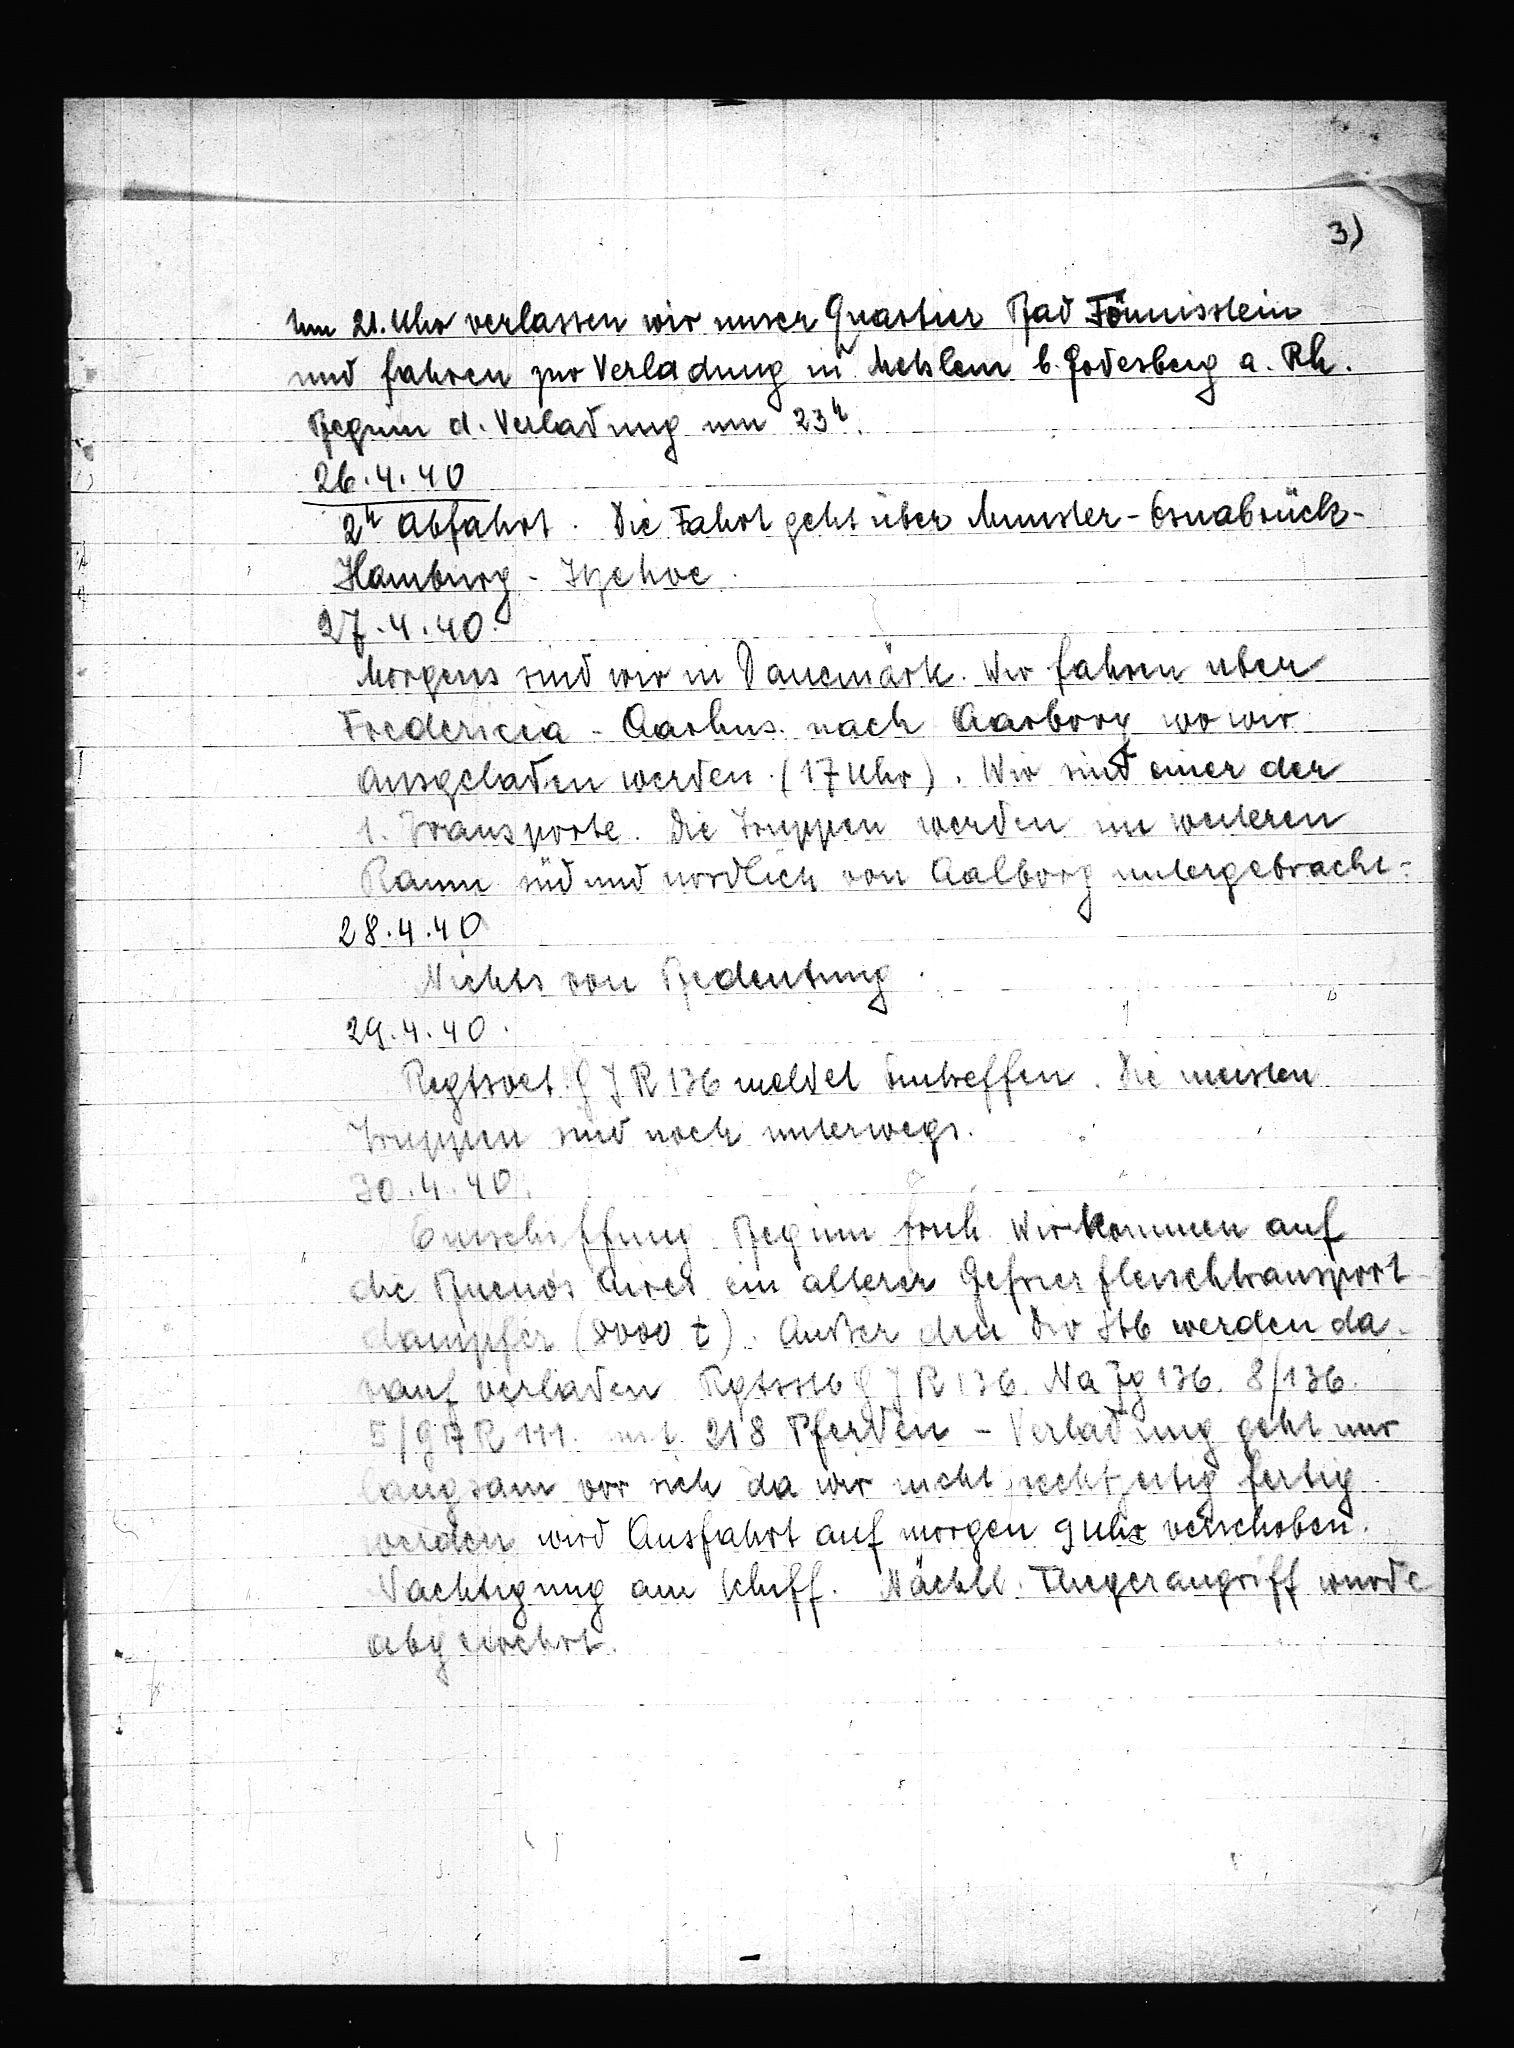 3)
Um 21. Uhr verlassen wir unser Quartier Bad Tönnisstein
und fahren zur Verladung in Mehlem b. Godesberg a. Rh.
Beginn d. Verladung um 23h.
26.4.40
2h Abfahrt. Die Fahrt geht über Munster - Osnabrück -
Hamburg - Itzehoe.
27.4.40.
Morgens sind wir in Danemark. Wir fahren uber
Fredericia - Aarhus. nach Aarborg wo wir
ausgeladen werden. (17 Uhr). Wir sind einer der
1. Transporte. Die Truppen werden im weiteren
Raum süd und nordlich von Aalborg untergebracht.
28.4.40
Nichts von Bedeutung.
29.4.40.
Regtsvet. GJR 136 meldet Eintreffen. Die meisten
Truppen sind noch unterwegs.
30.4.40.
Einschiffung Beginn fruh. Wir kommen auf
die Buenos Aires ein alterer Gefrierfleischtransport-
dampfer (8000 t). Außer den Div Stb werden da-
rauf verladen Rgtsstb GJR 136. Na Zg 136. 8/136.
5/GAR 111. mit 218 Pferden - Verladung geht nur
langsam vor sich da wir nicht rechtzeitig fertig
werden wird Ausfahrt auf morgen 9 Uhr verschoben.
Nachtigung am Schiff. Nächtl. Fliegerangriff wurde
abgewehrt.